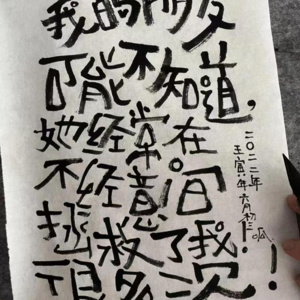 我的朋友
可能不知道，
她经常在
不经意间
拯救了我
很多次！
二〇二二年
壬寅年六月初三